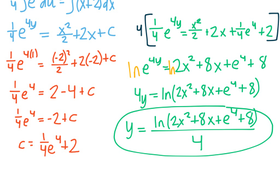 ¼∫e^u du = ∫(x+2)dx
¼e^{4y} = x²/2 + 2x + c
¼e^{4(1)} = (-2)²/2 + 2(-2) + c
¼e⁴ = 2 - 4 + c
¼e⁴ = -2 + c
c = ¼e⁴ + 2
4[¼e^{4y} = x²/2 + 2x + ¼e⁴ + 2]
ln e^{4y} = ln 2x² + 8x + e⁴ + 8
4y = ln(2x² + 8x + e⁴ + 8)
y = ln(2x² + 8x + e⁴ + 8)/4